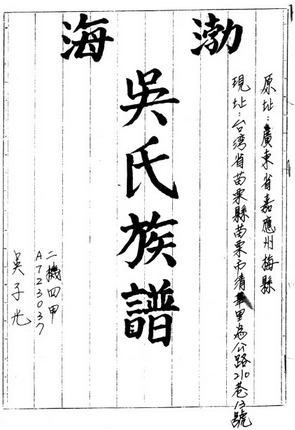 渤海
原址:廣東省嘉應州梅縣
現址:台湾省苗栗縣苗栗市清華里為公路210巷12號
吳氏族譜
二機四甲
A723037
吳子光